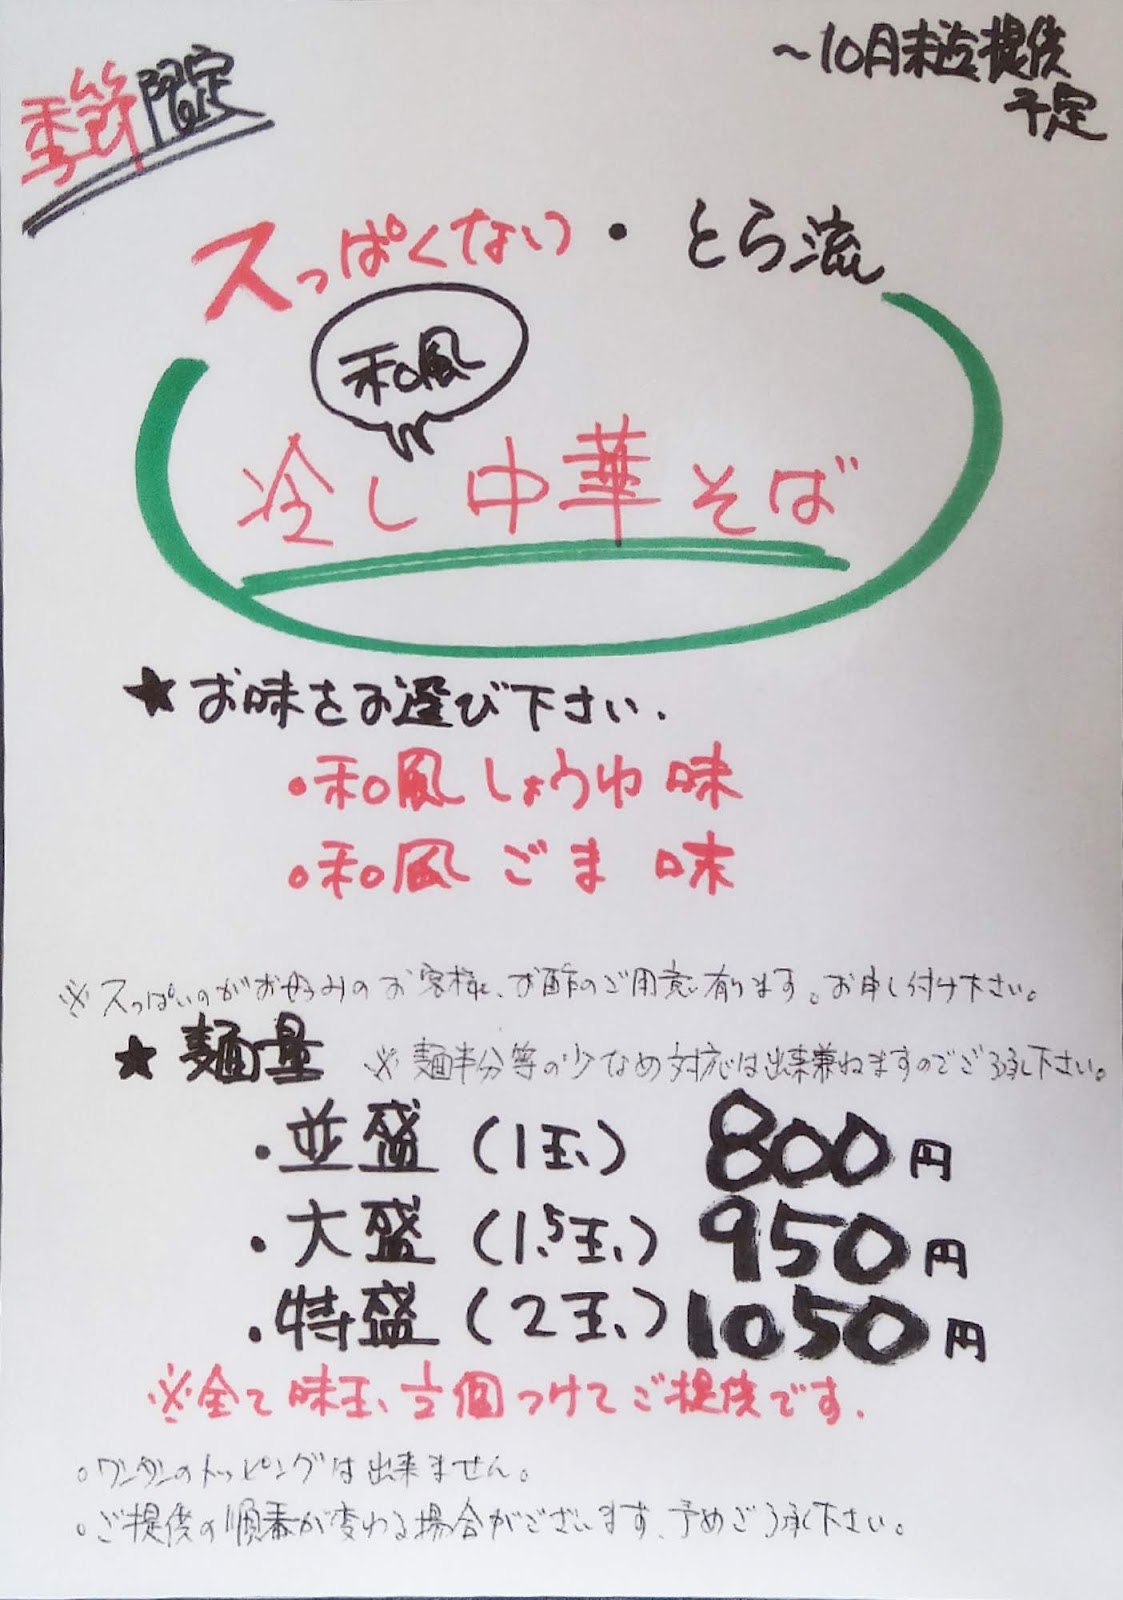 季節限定
~10月末迄提供
予定
スっぱくない・とら流
和風
冷し中華そば
★お味をお選び下さい.
・和風しょうゆ味
・和風ごま味
※スっぱいのがお好みのお客様、お酢のご用意有ります。お申し付け下さい。
★麺量 ※麺半分等の少なめ対応は出来兼ねますのでご了承下さい。
・並盛(1玉) 800円
・大盛(1.5玉) 950円
・特盛(2玉) 1050円
※全て味玉1/2個つけてご提供です.
。ワンタンのトッピングは出来ません。
。ご提供の順番が変わる場合がございます、予めご了承下さい。